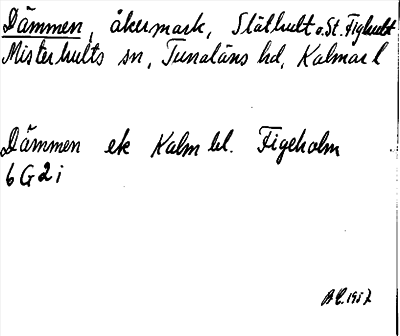 Dämmen, åkermark, Släthult o. St. Fighult
Misterhults sn, Tunaläns hd, Kalmar l
Dämmen ek Kalm bl. Figeholm
6G2i
1957